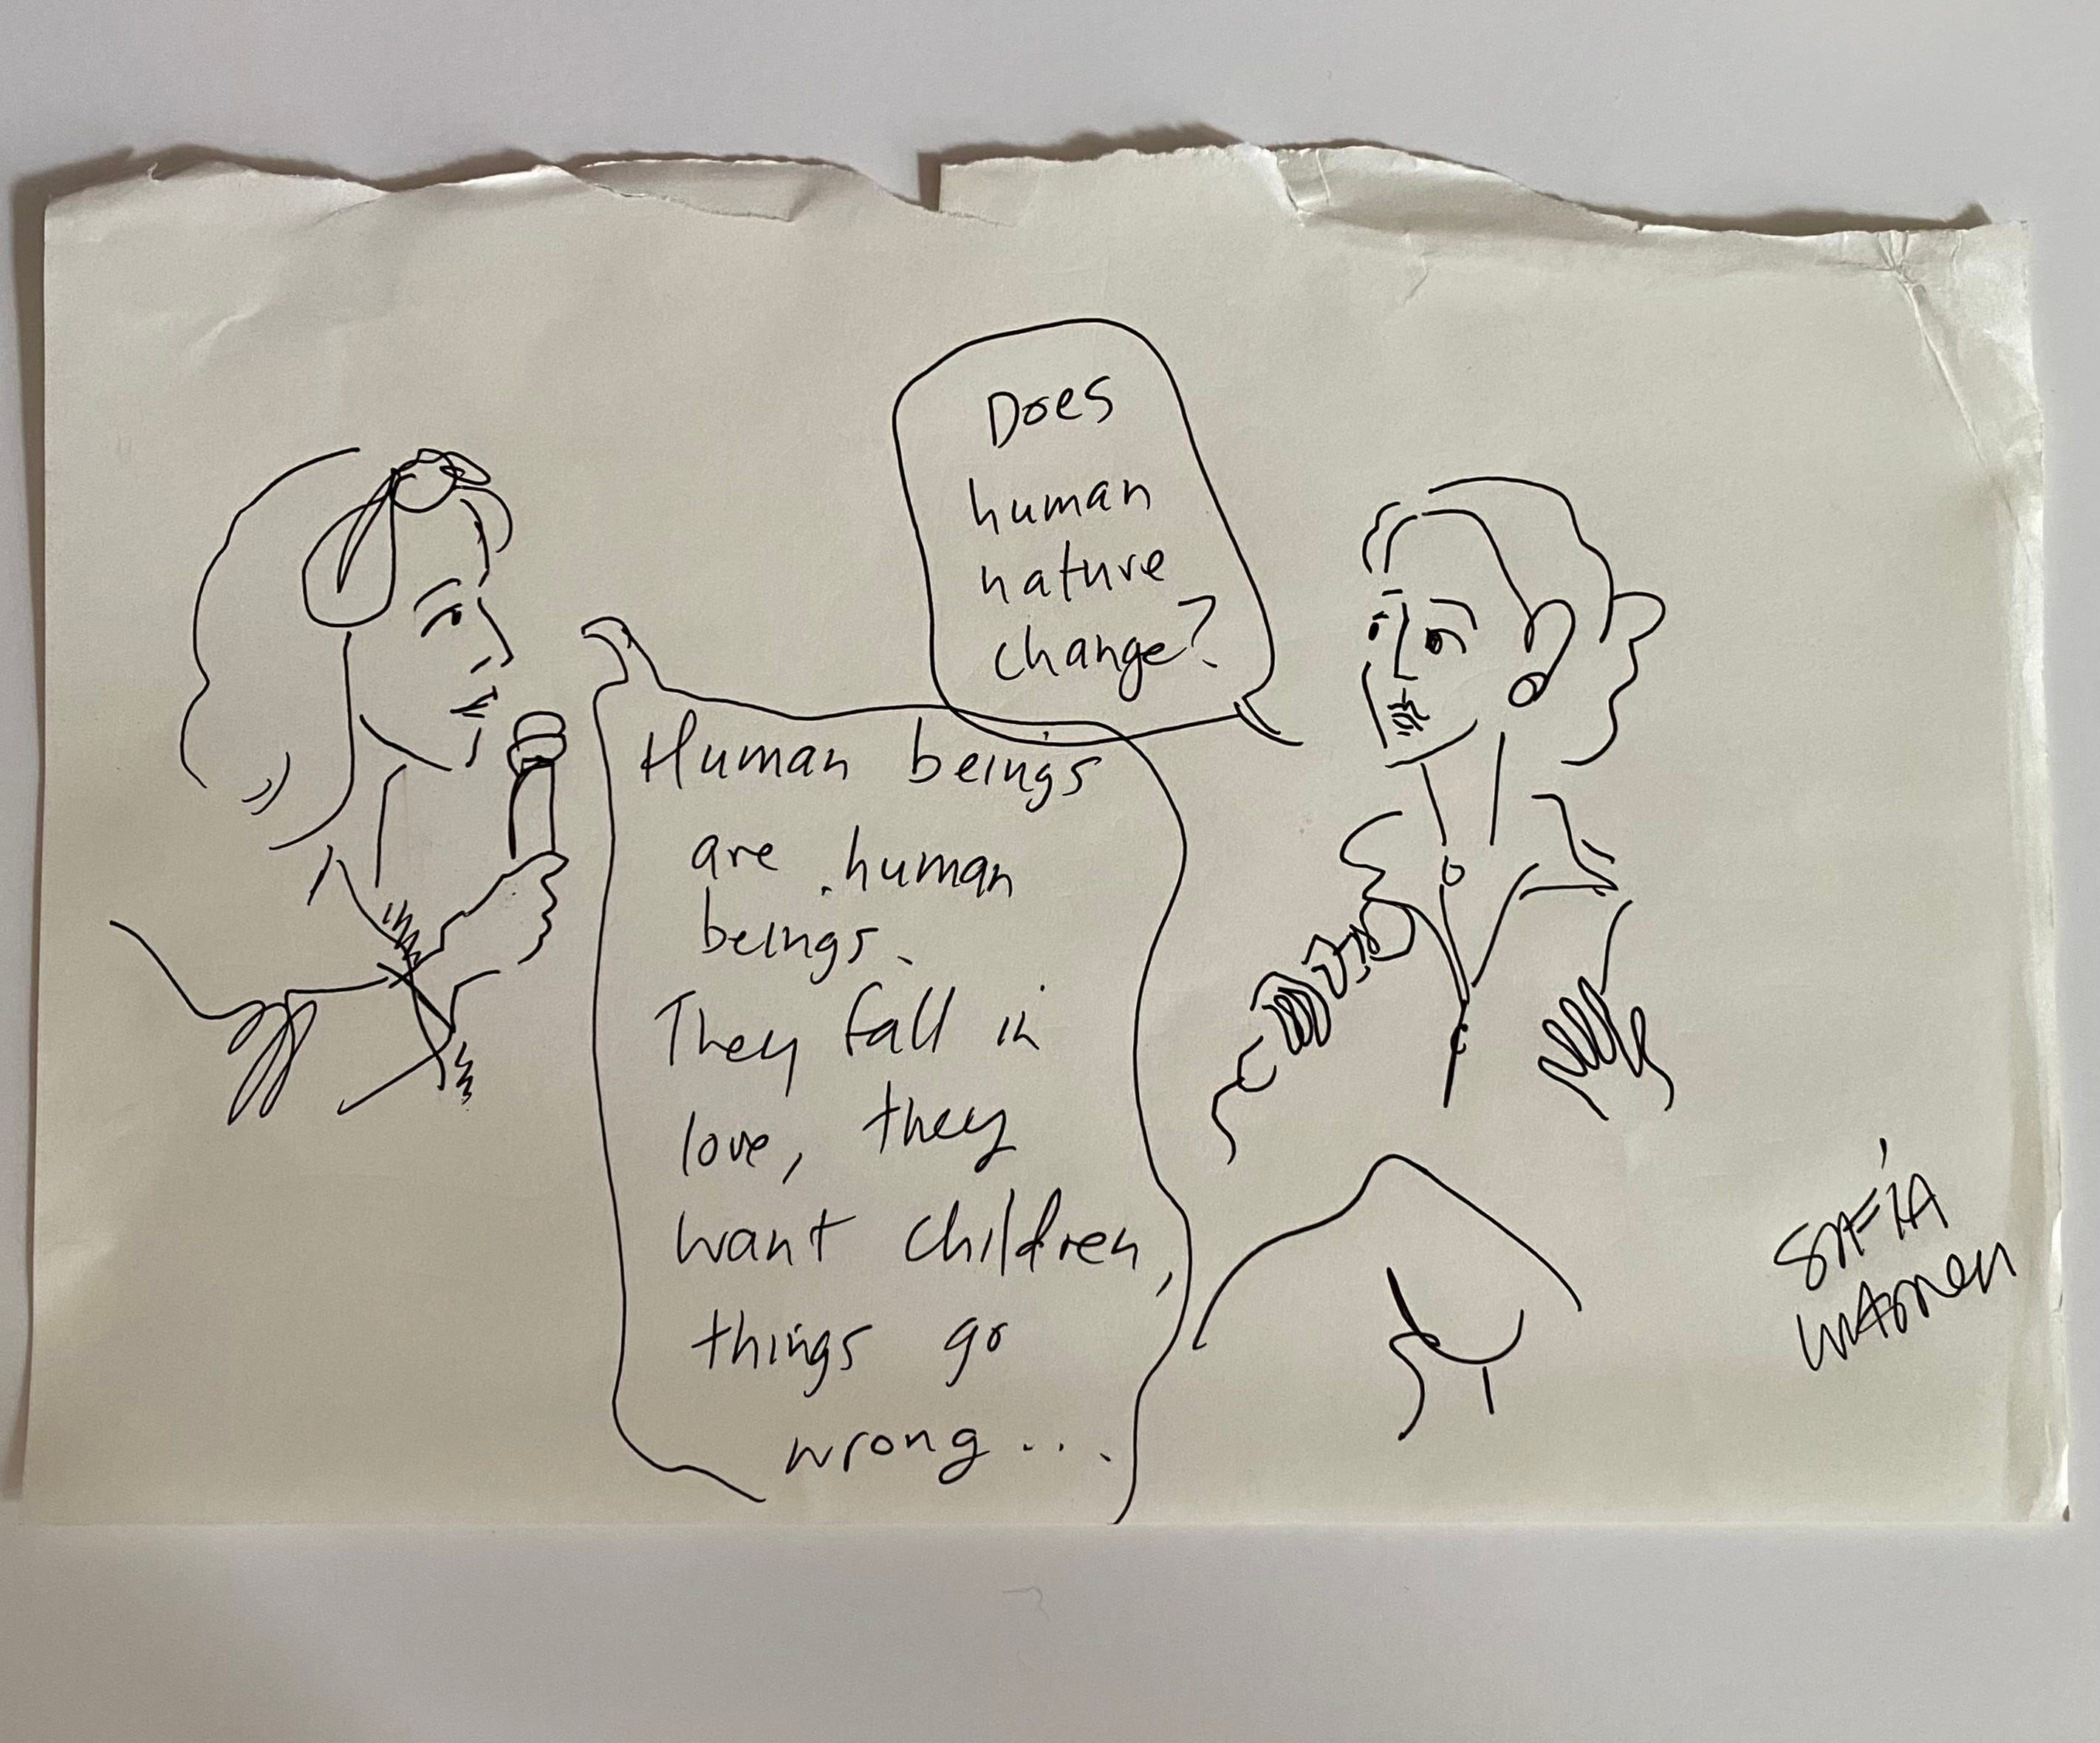 Does
human
nature
change?
Human beings
are human
beings.
They fall in
love, they
want children,
things go
wrong...
SOFIA
WARREN